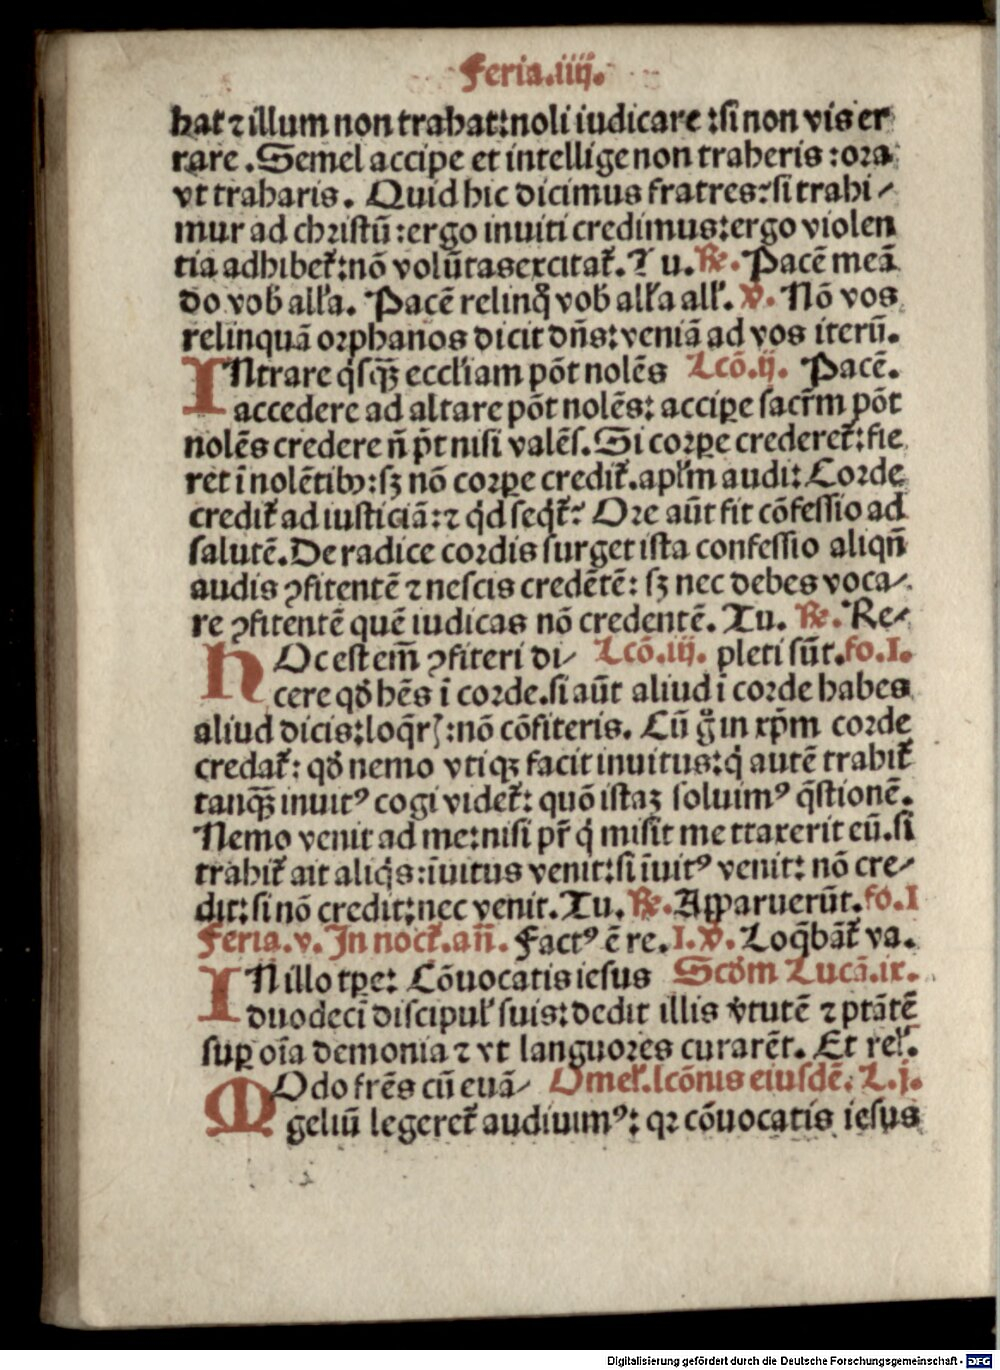 Feria.iiij.
hat⁊ illum non trahat:noli iudicare :si non vis er
rare .Semel accipe et intellige non traheris :ora
vt traharis. Quid hic dicimus fratres:si trahi⸗
mur ad christū :ergo inuiti credimus:ergo violen
tia adhibet᷑:nō volūtas excitat᷑.Tu.℟.Pacē meā
do vob̄ all'a. Pacē relinq̄ vob̄ all'a all'. ℣. Nō vos
relinquā orphanos dicit dn̄s:veniā ad vos iterū.
INtrare q̇sq̄ꝫ eccl'iam pōt nolēs Lcō.ij. Pacē.
accedere ad altare pōt nolēs: accipe sacr̄m pōt
nolēs credere n̄ p̄t nisi valēs.Si corpe crederet᷑:fie
ret ī nolētibꝰ:sꝫ nō corpe credit᷑.apl'm audi: Corde
credit᷑ ad iusticiā:⁊ q̇d seqt᷑: Ore aūt fit cōfessio ad
salutē.De radice cordis surget ista confessio aliqn̄
audis ꝯfitentē ⁊ nescis credētē: sꝫ nec debes voca⸗
re ꝯfitentē quē iudicas nō credentē. Tu. ℟. Re⸗
HOc est em̄ ꝯfiteri di⸗ Lcō.iij. pleti sūt.fo.I.
cere qd̄ hēs ī corde.si aūt aliud ī corde habes
aliud dicis:loq̄rꝭ:nō cōfiteris. Cū g̊ in xp̄m corde
credat᷑: qd̄ nemo vtiqꝫ facit inuitus:q̇ autē trahit᷑
tanq̄ꝫ inuitꝰ cogi videt᷑: quō istaꝫ soluimꝰ q̄stionē.
Nemo venit ad me:nisi pr̄ q̇ misit me traxerit eū.si
trahit᷑ ait aliq̇s:īuitus venit:si īuitꝰ venit: nō cre⸗
dit:si nō credit:nec venit.Tu.℟.Apparuerūt.fo.I
Feria.v. In noct᷑.an̄. Factꝰ ē re.I.℣.Loq̄bāt᷑ va.
IN illo tꝑe: Cōuocatis iesus Scd̄m Lucā.ix.
duodecī discipul' suis:dedit illis v̇tutē ⁊ ptātē
suꝑ oīa demonia ⁊ vt languores curarēt. Et rel'.
MOdo frēs cū euā⸗ Omel'.lcōnis eiusdē. L.j.
geliū legeret᷑ audiuimꝰ: qꝛ cōuocatis iesus
Digitalisierung gefördert durch die Deutsche Forschungsgemeinschaft - DFG